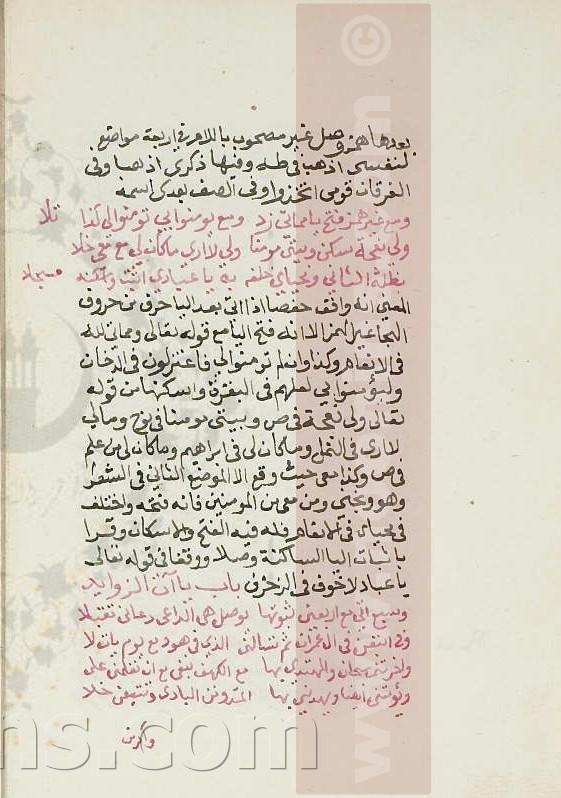 بعدها همز وصل غير مصحوب باللام في اربعة مواضع
لنفسي اذهبا في طه وفيها ذكري اذهبا وفي
الفرقان قومي اتخذوا وفي الصف بعدي اسمه
ومع غير همز فتح يا مماتي زد ومع يومنوا بي تومنوا لي كذا تلا
ولي نعجة سكن وبيتي مومنا ولي لا ارى ما كان لي مع معي خلا
بظلة الثاني ومحياي خلفه يا عبادي اثبت مسجلا
المعني انه وافق حفصا اذا اتى بعد اليا حرف من حروف
الهجا غير الهمز الا انه فتح اليا مع قوله تعالى ومماتي لله
في الانعام وكذا وان لم تومنوا لي فاعتزلون في الدخان
وليؤمنوا بي لعلهم في البقرة واسكنها من قوله
تعالى ولي نعجة في ص وبيتي مومنا في نوح ومالي
لا ارى في النمل وما كان لي في ابراهيم وما كان لي من علم
في ص وكذا معي حيث وقع الا الموضع الثاني في الشعرا
وهو ونجني ومن معي من المومنين فانه فتحه واختلف
في محياي في الانعام فله فيه الفتح والاسكان وقرا
باثبات اليا الساكنة وصلا ووقفا في قوله تعالى
يا عباد لا خوف في الزخرف باب ياآت الزوايد
وسبع اتى مع اربعين ثبوتها بوصل هي الداعي دعاني تقبلا
وفي اتبعن في ال عمران ثم تسالني الذي في هود مع يوم يات لا
واخرتني سبحان والمهتدي بها مع الكهف نبغي مع ان تعلمن على
ويؤتيني ايضا ويهديني بها البادي وتتبعن حلا
واكرمن
ns.com
©
www.